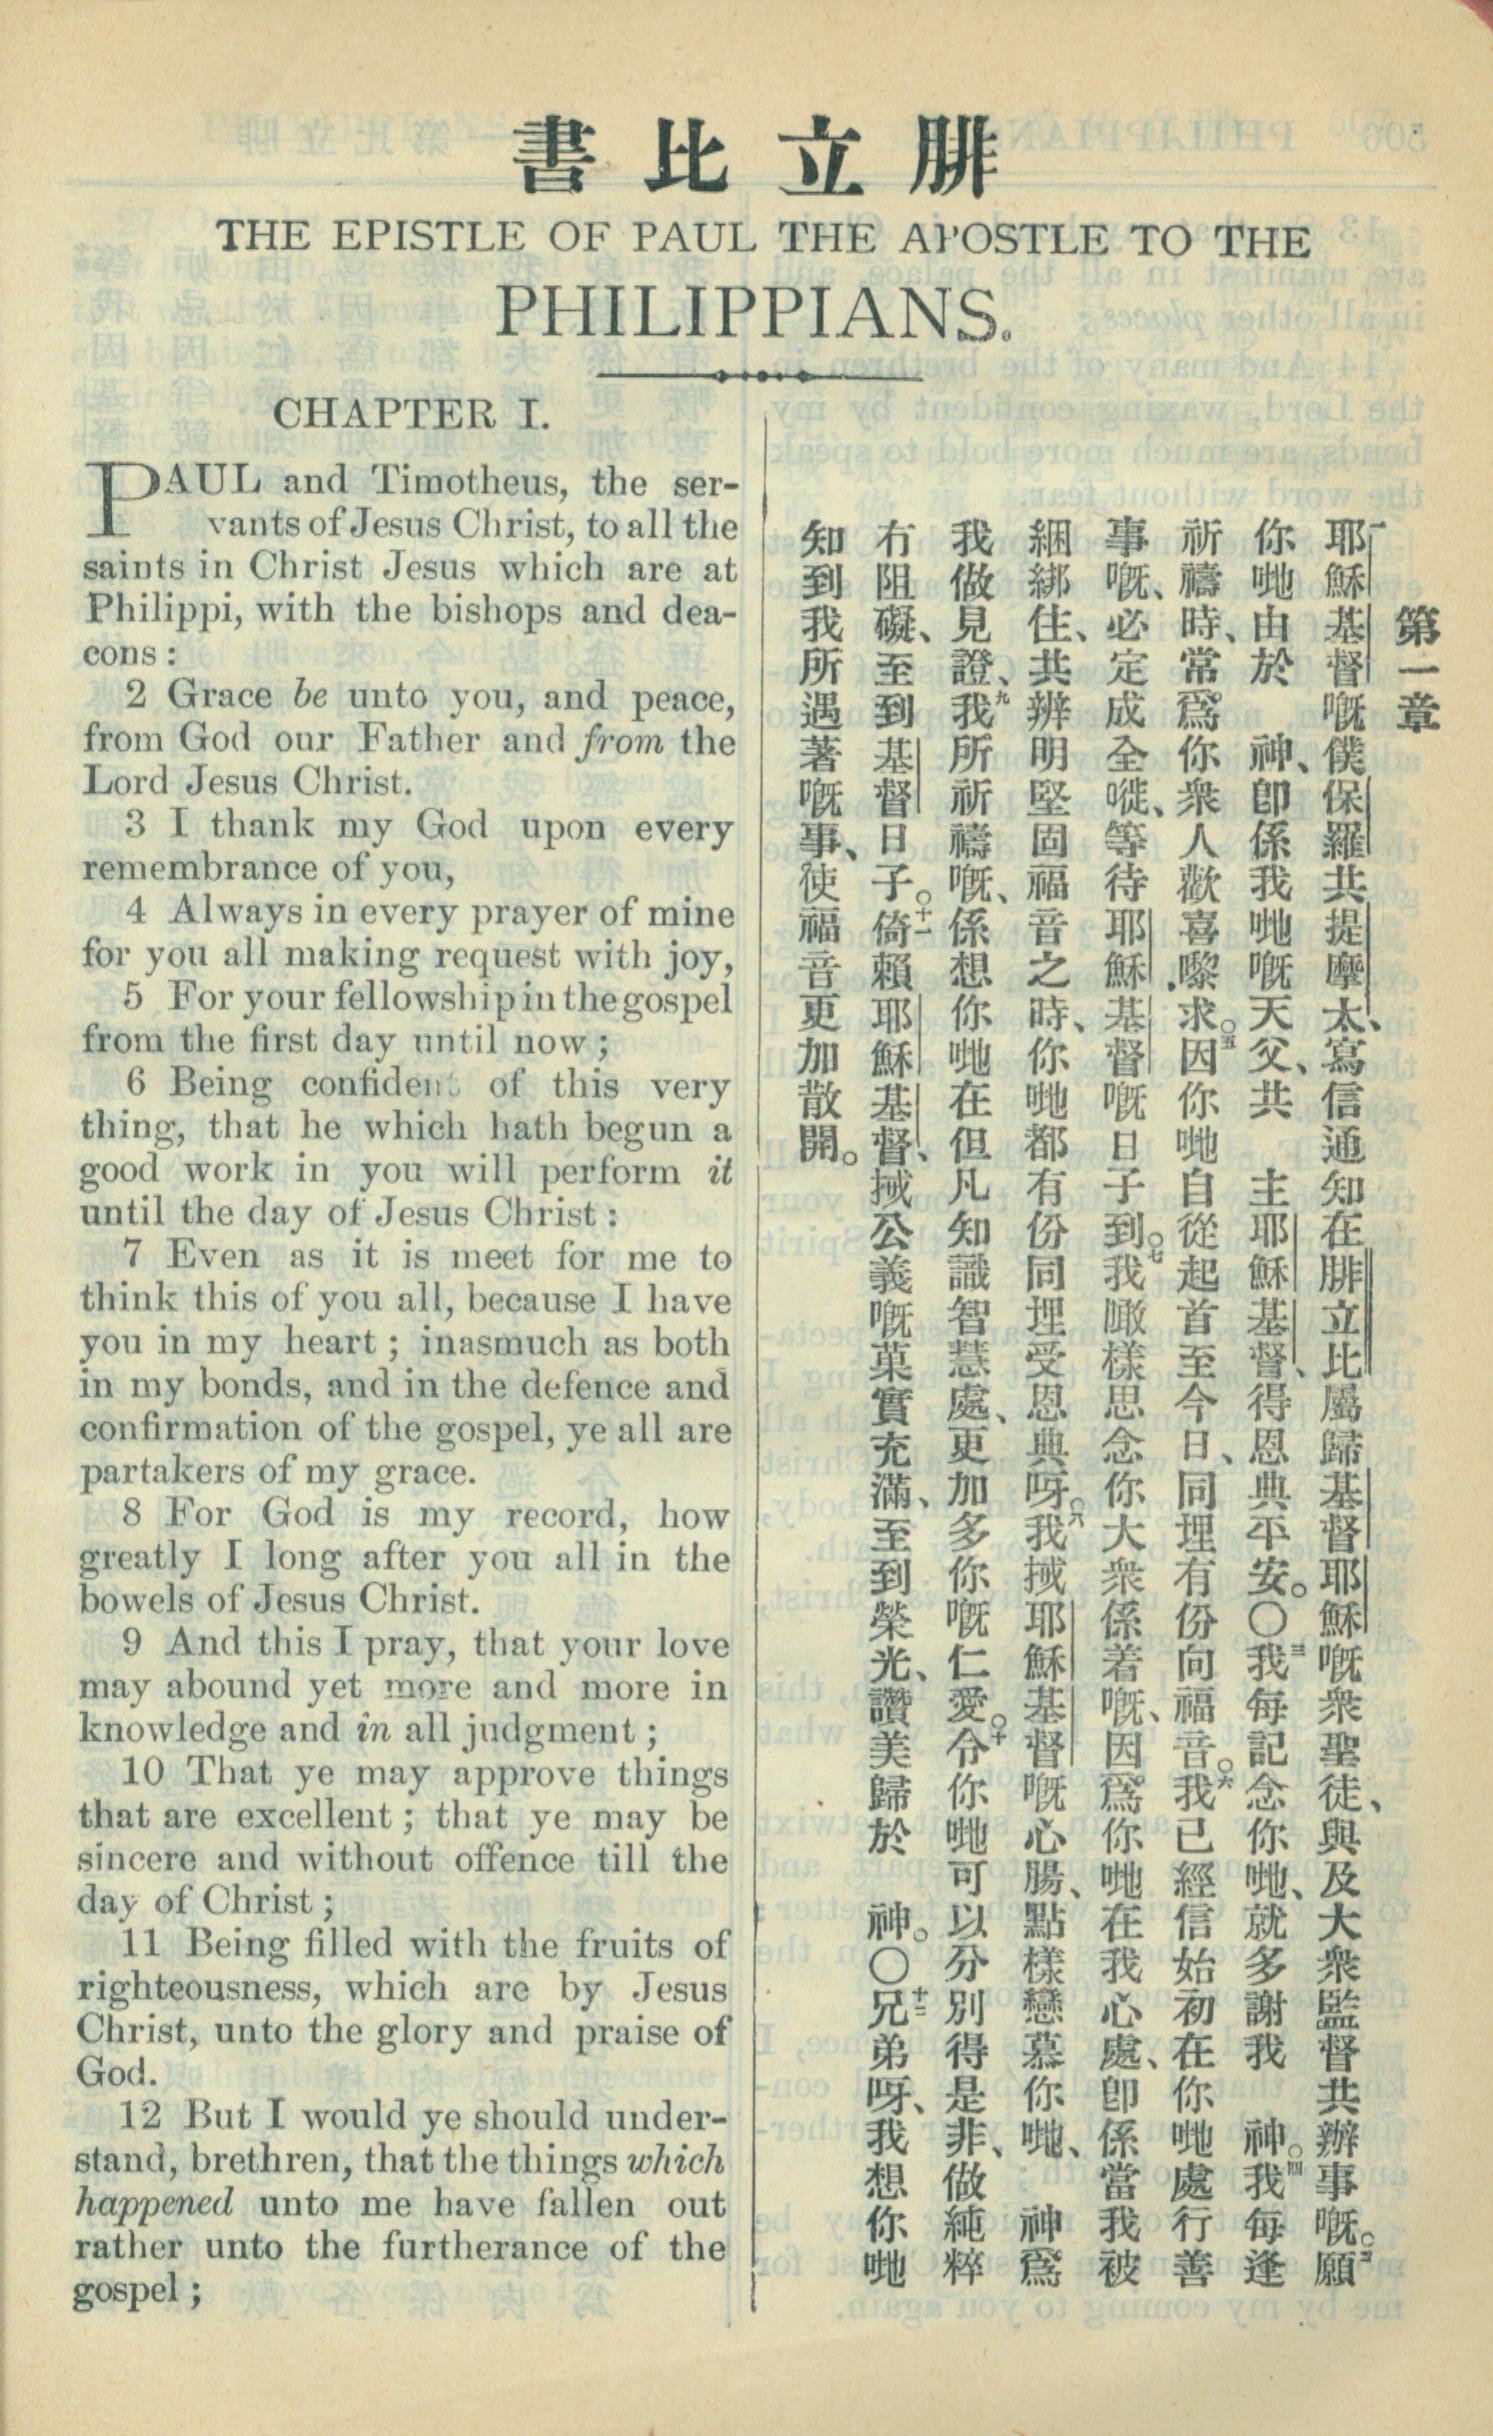 書比立腓
THE EPISTLE OF PAUL THE APOSTLE TO THE
PHILIPPIANS.
CHAPTER I.
PAUL and Timotheus, the ser-
vants of Jesus Christ, to all the
saints in Christ Jesus which are at
Philippi, with the bishops and dea-
cons:
2 Grace be unto you, and peace,
from God our Father and from the
Lord Jesus Christ.
3 I thank my God upon every
remembrance of you,
4 Always in every prayer of mine
for you all making request with joy,
5 For your fellowship in the gospel
from the first day until now;
6 Being confident of this very
thing, that he which hath begun a
good work in you will perform it
until the day of Jesus Christ:
7 Even as it is meet for me to
think this of you all, because I have
you in my heart; inasmuch as both
in my bonds, and in the defence and
confirmation of the gospel, ye all are
partakers of my grace.
8 For God is my record, how
greatly I long after you all in the
bowels of Jesus Christ.
9 And this I pray, that your love
may abound yet more and more in
knowledge and in all judgment;
10 That ye may approve things
that are excellent; that ye may be
sincere and without offence till the
day of Christ;
11 Being filled with the fruits of
righteousness, which are by Jesus
Christ, unto the glory and praise of
God.
12 But I would ye should under-
stand, brethren, that the things which
happened unto me have fallen out
rather unto the furtherance of the
gospel;
第一章
一耶穌基督嘅僕保羅共提摩太、寫信通知在腓立比屬歸基督耶穌嘅衆聖徒、與及大衆監督共辦事嘅。○二願
你哋由於 神、卽係我哋嘅天父、共 主耶穌基督、得恩典平安。○三我每記念你哋、就多謝我 神。○四我每逢
祈禱時、常爲你衆人歡喜嚟求。○五因你哋自從起首至今日、同埋有份向福音。○六我已經信始初在你哋處行善
事嘅、必定成全嘥、等待耶穌基督嘅日子到。○七我噉樣思念你大衆係着嘅、因爲你哋在我心處、卽係當我被
綑綁住、共辨明堅固福音之時、你哋都有份同埋受恩典呀。○八我㨢耶穌基督嘅心腸、點樣戀慕你哋、 神爲
我做見證、九我所祈禱嘅、係想你哋在但凡知識智慧處、更加多你嘅仁愛。○十令你哋可以分別得是非、做純粹
冇阻礙、至到基督日子。○十一倚賴耶穌基督、㨢公義嘅菓實充滿、至到榮光、讚美歸於 神。○十二兄弟呀、我想你哋
知到我所遇著嘅事、使福音更加散開。